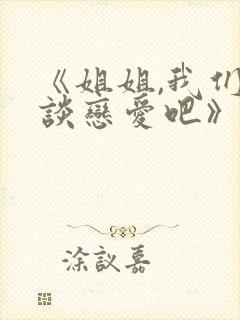 《姐姐,我们
談戀愛吧》
涂議嘉